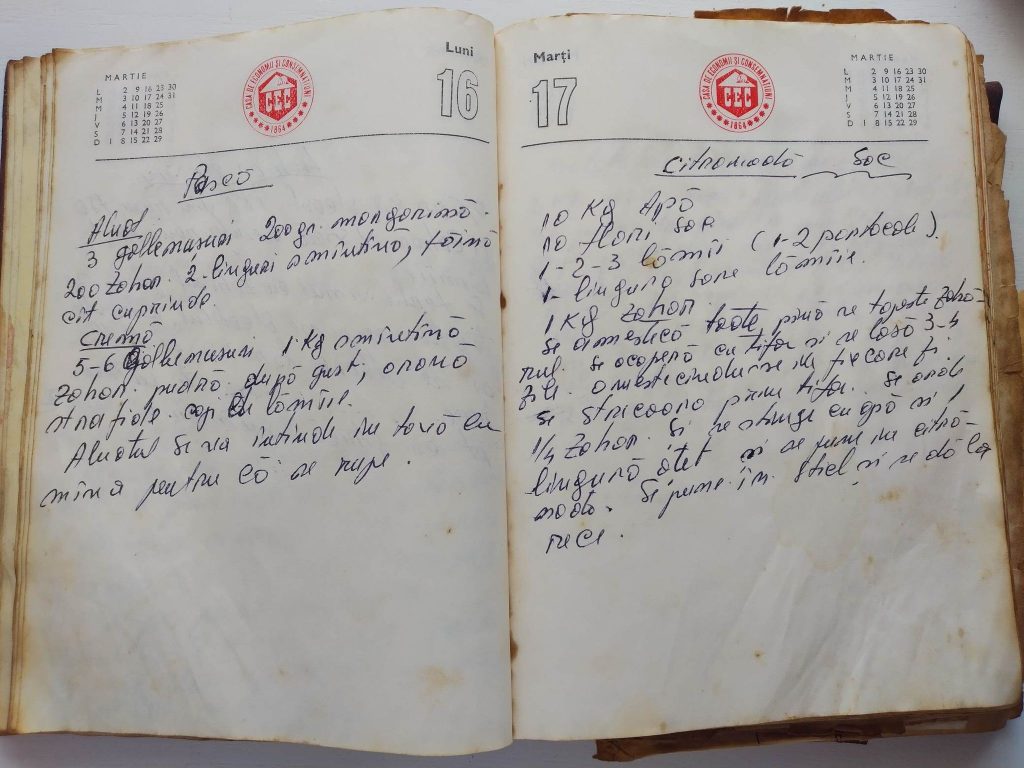 MARTIE
L 2 9 16 23 30
M 3 10 17 24 31
M 4 11 18 25
J 5 12 19 26
V 6 13 20 27
S 7 14 21 28
D 1 8 15 22 29
CASA DE ECONOMII ȘI CONSEMNAȚIUNI
CEC
1864
Luni
16
Pască
Aluat
3 gălbenușuri 200 gr. margarină.
200 zahăr. 2 linguri smîntînă, făină
cît cuprinde.
Cremă
5-6 gălbenușuri 1 Kg smîntînă
zahăr pudră după gust, aromă
stafide coji de lămîie.
Aluatul se va întinde în tavă cu
mîna pentru că se rupe.
Marți
17
CASA DE ECONOMII ȘI CONSEMNAȚIUNI
CEC
1864
MARTIE
L 2 9 16 23 30
M 3 10 17 24 31
M 4 11 18 25
J 5 12 19 26
V 6 13 20 27
S 7 14 21 28
D 1 8 15 22 29
Citronadă Soc
10 Kg Apă
10 flori soc
1-2-3 lămîi (1-2 portocale).
1- lingura sare lămîie.
1 Kg zahăr.
Se amestică toate pînă se topește zahă-
rul. Se acoperă cu tifon si se lasă 3-4
zile. amestecindu-se in fiecare zi.
Se strecoara prin tifon. Se arde
1/4 zahăr. Si se stinge cu apă si 1
lingură otet si se pune in citro-
nada. Si pune in sticl si se dă la
rece.